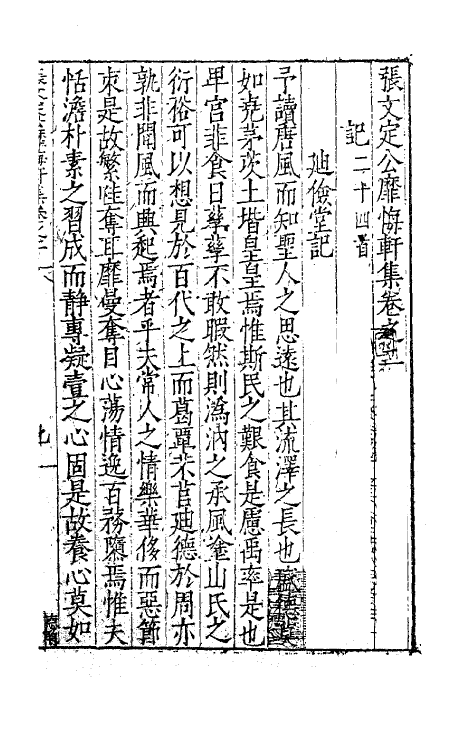 張文定公靡悔軒集卷之
記二十四首
廸儉堂記
予讀唐風而知聖人之思遠也其流澤之長也
如堯茅茨土堦皇皇焉惟斯民之艱食是慮禹率是也
卑宮菲食日孳孳不敢暇然則溈汭之承風塗山氏之
衍裕可以想見於百代之上而葛覃芣苢廸德於周亦
孰非聞風而興起焉者乎夫常人之情樂華侈而惡節
朿是故繁哇奪耳靡曼奪目心蕩情逸百務隳焉惟夫
恬澹朴素之習成而静專凝壹之心固是故養心莫如